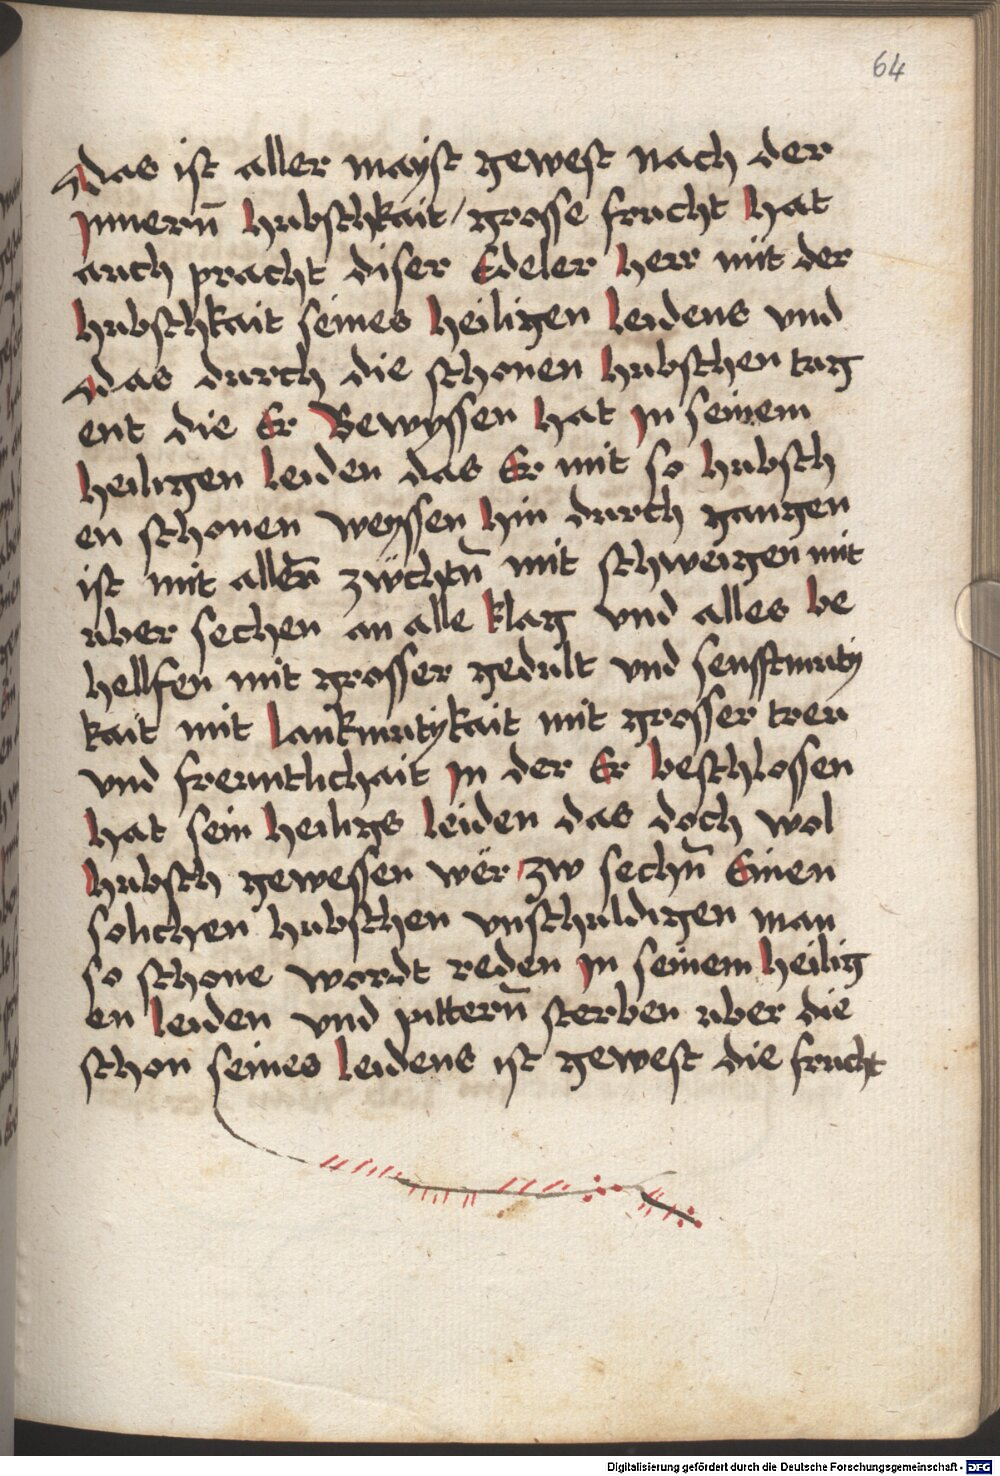 64
das ist aller mayst gewest nach der
Innern̄ hubschkait / grosse frucht hat
auch pracht diser Edeler herr mit der
hubschkait seines heiligen leidens vnd
das durch die schonen hubschen tug
ent die Er Bewyssen hat In seinem
heiligen leiden das Er mit so hubsch
en schonen weyssen hin durch gangen
ist mit allen̄ zẅchtn̄ mit schweigen mit
uber sechen an alle klag vnd alles be
hellfen mit grosser gedult vnd senfftmuty
kait mit lankmutykait mit grosser trew
vnd freuntlichait In der Er beschlossen
hat sein heiligs leiden das doch wol
hubsch gewessen wër zw sechn̄ Einen
solichen hubschen vnschuldigen man
so schone wordt reden In seinem heilig
en leiden vnd pittern̄ sterben uber die
schon seines leidens ist gewest die frucht
Digitalisierung gefördert durch die Deutsche Forschungsgemeinschaft - DFG